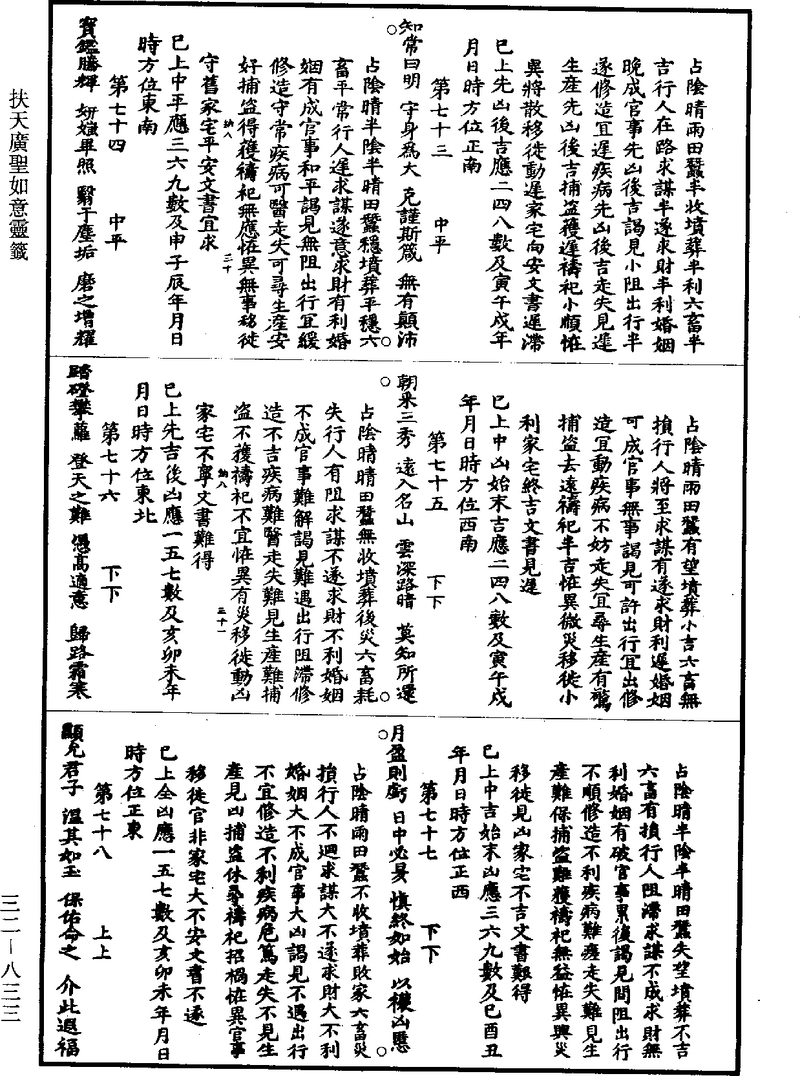 扶天廣聖如意靈籤
占陰晴雨田蠶半收墳葬半利六畜半
吉行人在路求謀半遂求財半利婚姻
晚成官事先凶後吉謁見小阻出行半
遂修造宜遲疾病先凶後吉走失見遲
生產先凶後吉捕盜獲遲禱祀小順怪
異將散移徙動遲家宅向安文書遲滯
巳上先凶後吉應二四八數及寅午戌年
月日時方位正南
第七十三 中平
知常曰明 守身為大 克謹斯箴 無有顛沛
占陰晴半陰半晴田蠶穩墳葬平穩六
畜平常行人遲求謀遂意求財有利婚
姻有成官事和平謁見無阻出行宜緩
修造守常疾病可醫走失可尋生產安
好捕盜得獲禱祀無應怪異無事移徙
納八 三十
守舊家宅平安文書宜求
巳上中平應三六九數及申子辰年月日
時方位東南
第七十四 中平
寶鑑騰輝 妍媸畢照 翳于塵垢 磨之增耀
占陰晴雨田蠶有望墳葬小吉六畜無
損行人將至求謀有遂求財利遲婚姻
可成官事無事謁見可許出行宜出修
造宜動疾病不妨走失宜尋生產有驚
捕盜去遠禱祀半吉怪異微災移徙小
利家宅終吉文書見遲
巳上中凶始末吉應二四八數及寅午戌
年月日時方位西南
第七十五 下下
朝采三秀 遠入名山 雲深路暗 莫知所還
占陰晴晴田蠶無收墳葬後災六畜耗
失行人有阻求謀不遂求財不利婚姻
不成官事難解謁見難遇出行阻滯修
造不吉疾病難醫走失難見生產難捕
盜不獲禱祀不宜怪異有災移徙動凶
納八 三十一
家宅不寧文書難得
巳上先吉後凶應一五七數及亥卯未年
月日時方位東北
第七十六 下下
踏磴攀蘿 登天之難 憑高適意 歸路霜寒
占陰晴半陰半晴田蠶失望墳葬不吉
六畜有損行人阻滯求謀不成求財無
利婚姻有破官事累復謁見間阻出行
不順修造不利疾病難痊走失難見生
產難保捕盜難獲禱祀無益怪異興災
移徙見凶家宅不吉文書艱得
巳上中吉始末凶應三六九數及巳酉丑
年月日時方位正西
第七十七 下下
月盈則虧 日中必昃 慎終如始 以禳凶慝
占陰晴雨田蠶不收墳葬敗家六畜災
損行人不迴求謀大不遂求財大不利
婚姻大不成官事大凶謁見不遇出行
不宜修造不利疾病危篤走失不見生
產見凶捕盜休尋禱祀招禍怪異官事
移徙官非家宅大不安文書不遂
巳上全凶應一五七數及亥卯未年月日
時方位正東
第七十八 上上
顯允君子 溫其如玉 保佑命之 介此遐福
三二—八三三